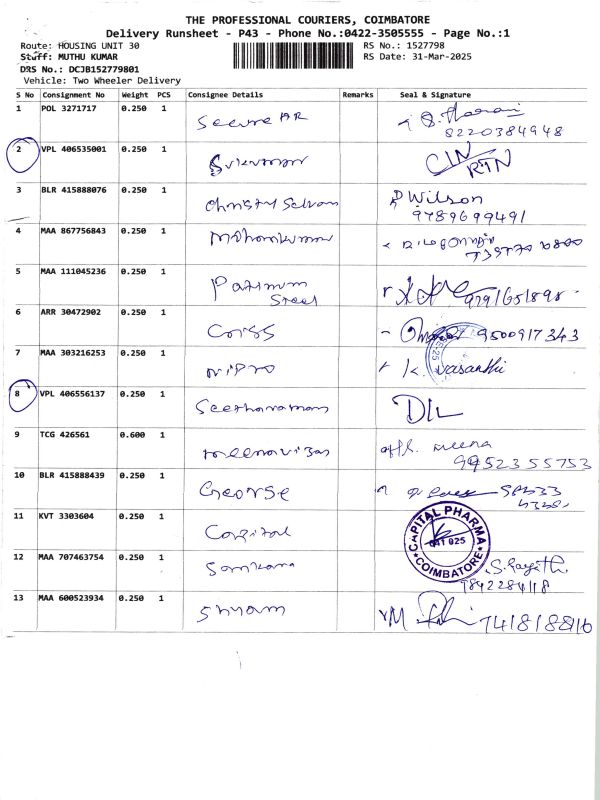 THE PROFESSIONAL COURIERS, COIMBATORE
Delivery Runsheet - P43 - Phone No.:0422-3505555 - Page No.:1
Route: HOUSING UNIT 30
RS No.: 1527798
Stuff: MUTHU KUMAR
RS Date: 31-Mar-2025
DRS No.: DCJB152779801
Vehicle: Two Wheeler Delivery
S No Consignment No Weight PCS Consignee Details Remarks Seal & Signature
1 POL 3271717 0.250 1 Secure
8220384948
2 VPL 406535001 0.250 1 CIN
RTN
3 BLR 415888076 0.250 1 Christy Selvam P Wilson
9789699491
4 MAA 867756843 0.250 1 Mohankumar
5 MAA 111045236 0.250 1
Steel
6 ARR 30472902 0.250 1 9500917343
7 MAA 303216253 0.250 1 Nipro K. Vasanthi
8 VPL 406556137 0.250 1 Seetharaman D/L
9 TCG 426561 0.600 1 meena
9952355753
10 BLR 415888439 0.250 1 George
11 KVT 3303604 0.250 1 Capital CAPITAL PHARMA
COIMBATORE
12 MAA 707463754 0.250 1 Sankara
9842284118
13 MAA 600523934 0.250 1 Shyam M